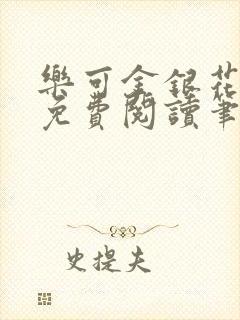 樂可金銀花
免費閱讀筆
史提夫